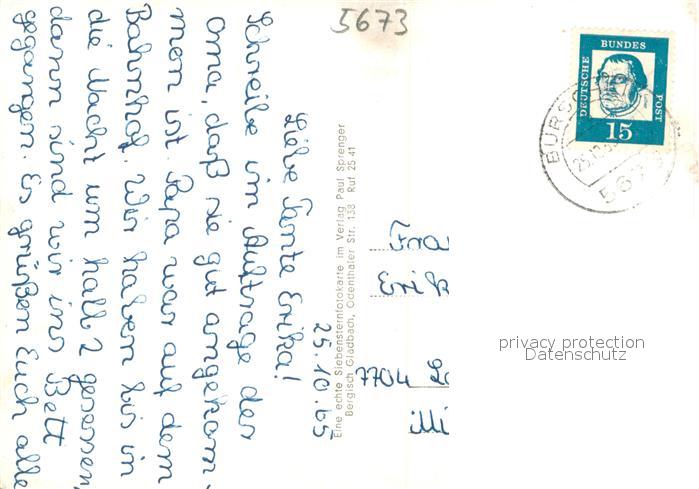 5673
25.10.65
Liebe Tante Erika!
Schreibe im Auftrage der
Oma, daß sie gut angekom-
men ist. Papa war auf dem
Bahnhof. Wir haben bis in
die Nacht um halb 2 gesessen,
dann sind wir ins Bett
gegangen. Es grüßen Euch alle
Eine echte Siebensternfotokarte im Verlag Paul Sprenger
Bergisch Gladbach, Odenthaler Str. 138 Ruf 25 41
DEUTSCHE BUNDES POST
15
BURS
25.10.
567
Frau
Erik
7704
privacy protection
Datenschutz